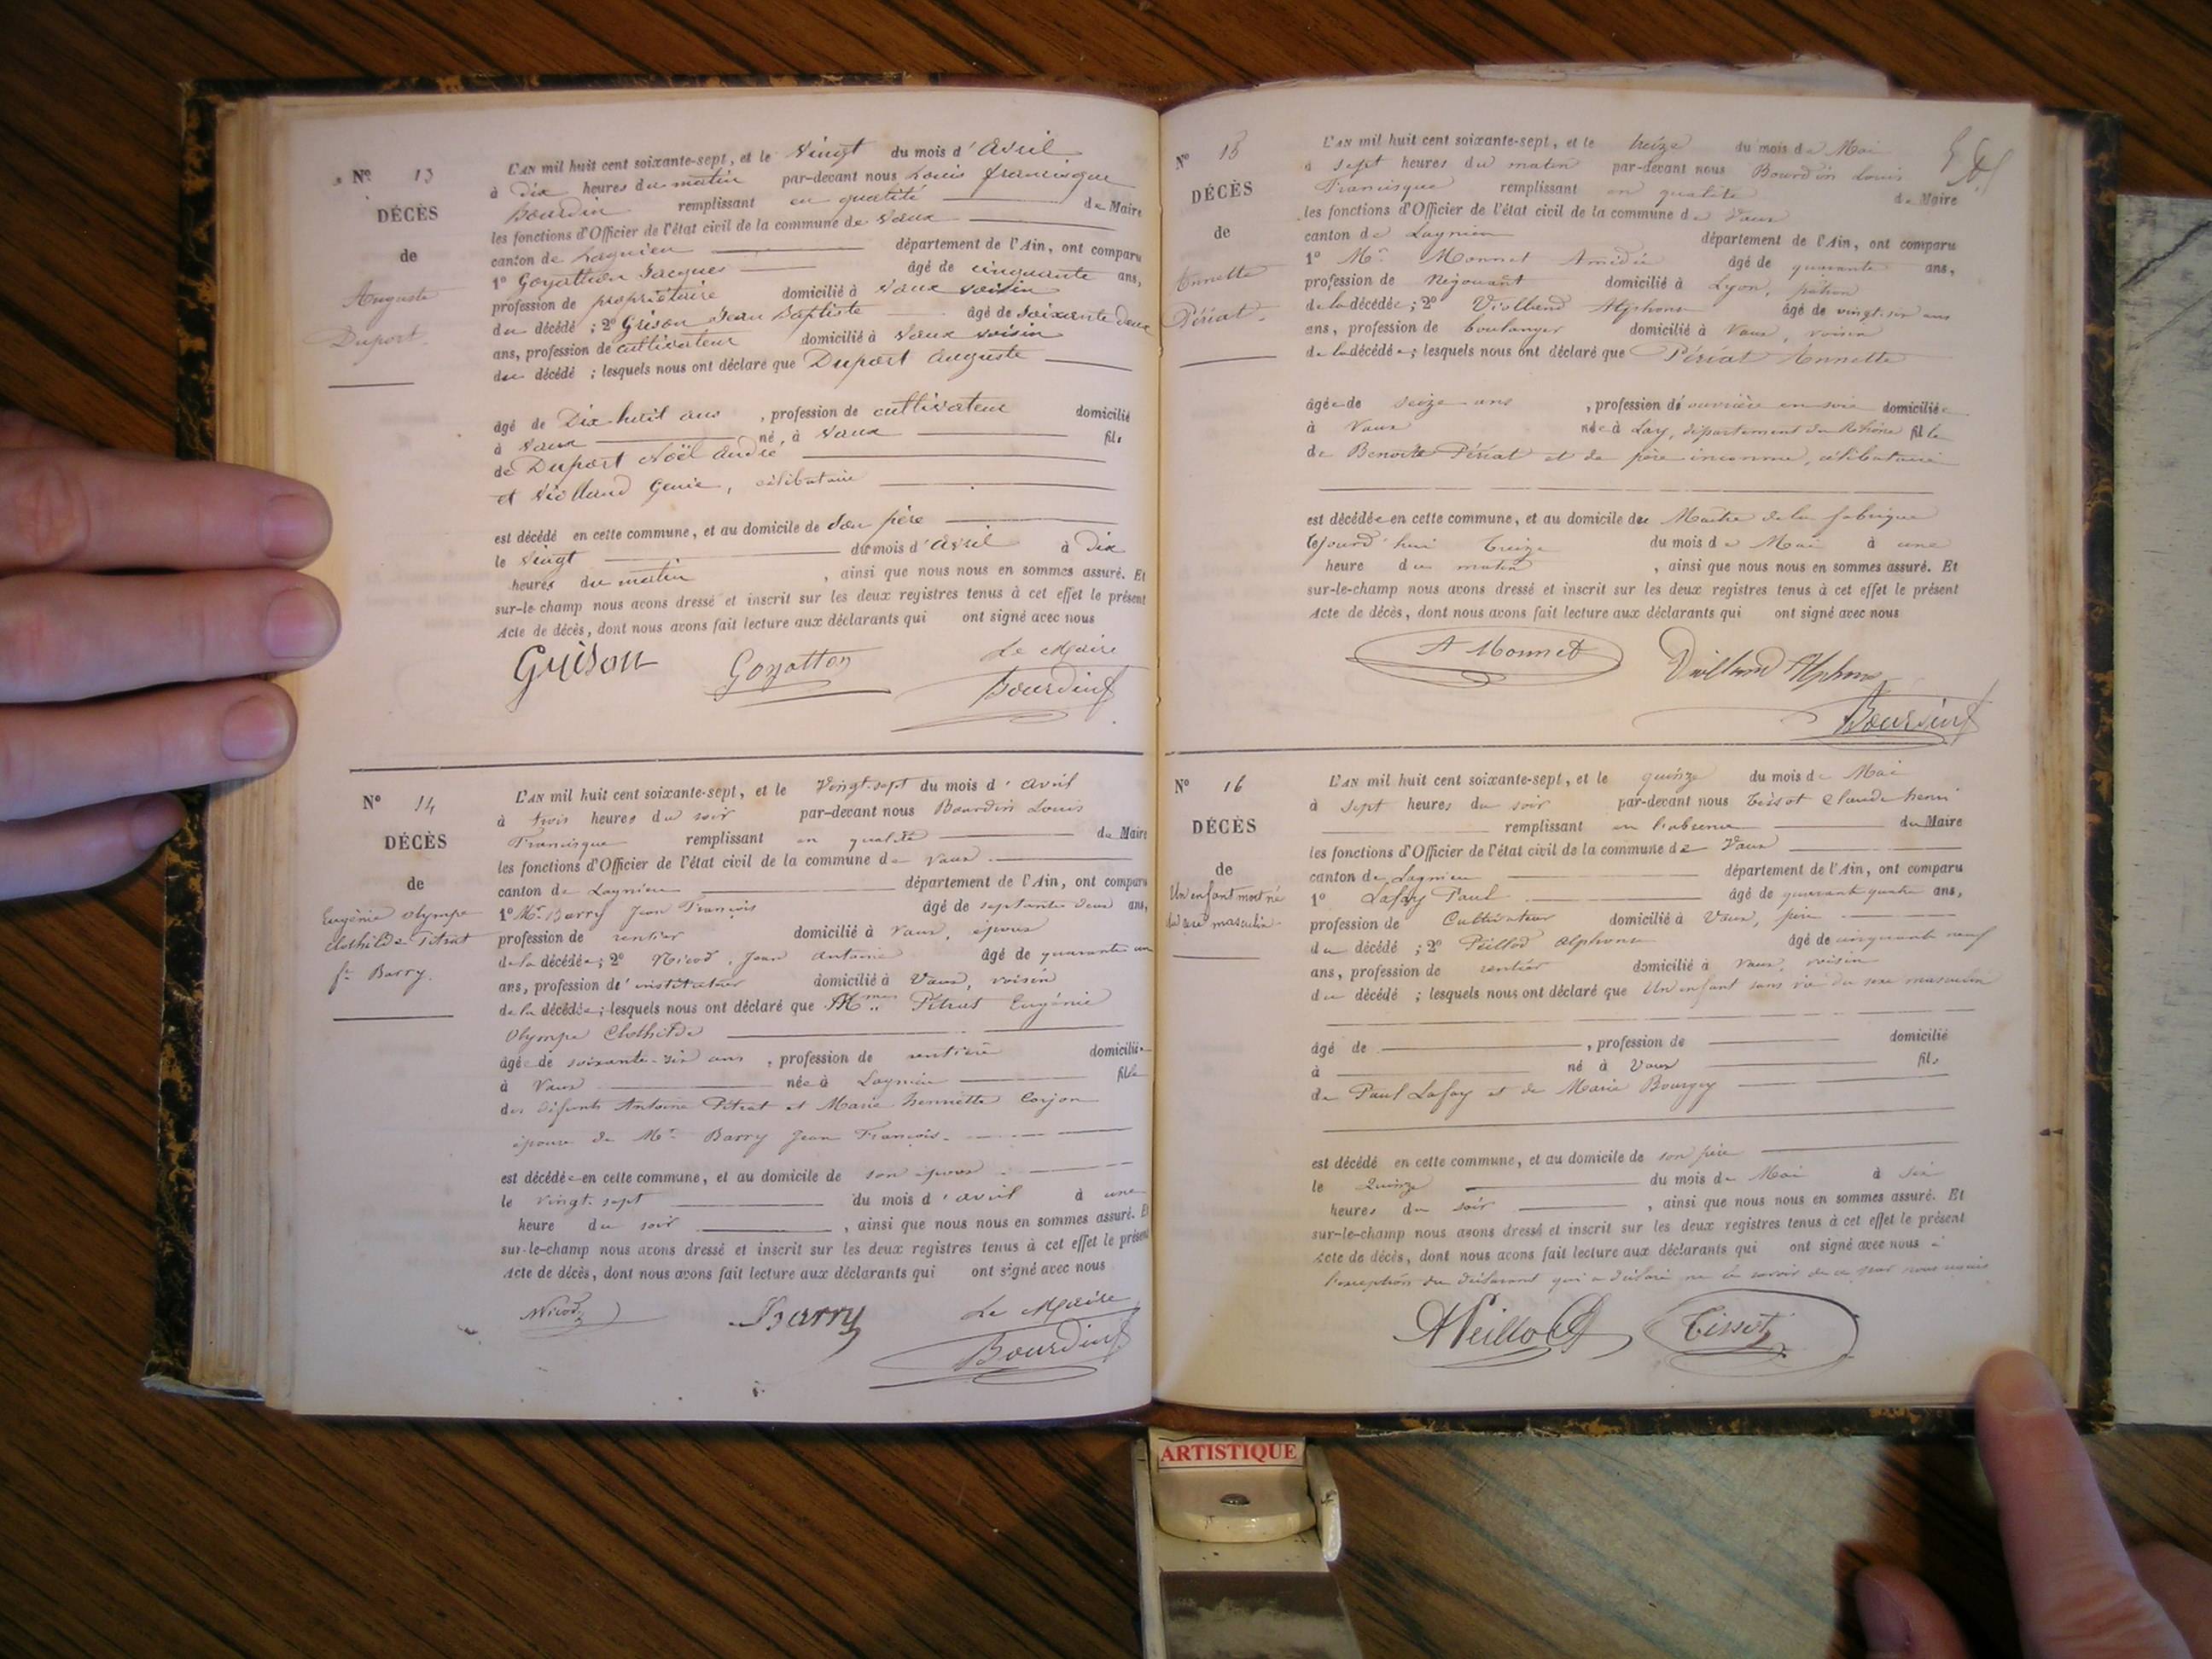 N° 13
DÉCÈS
de
Auguste
Duport.
L'AN mil huit cent soixante-sept, et le Vingt du mois d'Avril
à Dix heures du matin par-devant nous Louis francisque
Bourdin remplissant en qualité de Maire
les fonctions d'Officier de l'état civil de la commune de Vaux
canton de Lagnieu département de l'Ain, ont comparu
1° Goyatton Jacques âgé de cinquante ans,
profession de propriétaire domicilié à Vaux voisin
du décédé ; 2° Grison Jean Baptiste âgé de soixante deux
ans, profession de cultivateur domicilié à Vaux voisin
du décédé ; lesquels nous ont déclaré que Duport Auguste
âgé de Dix-huit ans , profession de cultivateur domicilié
à Vaux né à Vaux fils
de Duport Noël André
et Violland Génie, célibataire
est décédé en cette commune, et au domicile de Son père
le Vingt du mois d'Avril à Dix
heures du matin , ainsi que nous nous en sommes assuré. Et
sur-le-champ nous avons dressé et inscrit sur les deux registres tenus à cet effet le présent
Acte de décès, dont nous avons fait lecture aux déclarants qui ont signé avec nous
Le Maire
Grison Goyatton Bourdin
N° 14
DÉCÈS
de
Eugénie Olympe
Clothilde Pitrat
fe Barry.
L'AN mil huit cent soixante-sept, et le Vingt-sept du mois d'avril
à trois heures du soir par-devant nous Bourdin Louis
Francisque remplissant en qualité de Maire
les fonctions d'Officier de l'état civil de la commune de Vaux
canton de Lagnieu département de l'Ain, ont comparu
1° Mr. Barry Jean François âgé de septante deux ans,
profession de rentier domicilié à Vaux, époux
de la décédée ; 2° Nicod, Jean Antoine âgé de quarante un
ans, profession d'instituteur domicilié à Vaux, voisin
de la décédée ; lesquels nous ont déclaré que Mme Pitrat Eugénie
Olympe Clothilde
âgée de soixante-six ans , profession de rentière domiciliée
à Vaux née à Lagnieu fille
des défunts Antoine Pitrat et Marie henriette Corjon
épouse de Mr. Barry Jean François.
est décédée en cette commune, et au domicile de son époux
le vingt-sept du mois d'avril à une
heure du soir , ainsi que nous nous en sommes assuré. Et
sur-le-champ nous avons dressé et inscrit sur les deux registres tenus à cet effet le présent
Acte de décès, dont nous avons fait lecture aux déclarants qui ont signé avec nous
Le Maire
Nicod Barry Bourdin
N° 15
DÉCÈS
de
Annette
Périat.
L'AN mil huit cent soixante-sept, et le treize du mois de Mai
à sept heures du matin par-devant nous Bourdin Louis
Francisque remplissant en qualité de Maire
les fonctions d'Officier de l'état civil de la commune de Vaux
canton de Lagnieu département de l'Ain, ont comparu
1° Mr. Monnet Amédée âgé de quarante ans,
profession de Négociant domicilié à Lyon, patron
de la décédée ; 2° Violland Alphonse âgé de vingt-six ans
ans, profession de boulanger domicilié à Vaux, voisin
de la décédée ; lesquels nous ont déclaré que Périat Annette
âgée de seize ans , profession d'ouvrière en soie domiciliée
à Vaux née à Lay, département du Rhône fille
de Benoite Périat et de père inconnu, célibataire
est décédée en cette commune, et au domicile du Maître de la fabrique
cejourd'hui treize du mois de Mai à une
heure du matin , ainsi que nous nous en sommes assuré. Et
sur-le-champ nous avons dressé et inscrit sur les deux registres tenus à cet effet le présent
Acte de décès, dont nous avons fait lecture aux déclarants qui ont signé avec nous
A Monnet Violland Alphonse
Bourdin
N° 16
DÉCÈS
de
Un enfant mort né
du sexe masculin
L'AN mil huit cent soixante-sept, et le quinze du mois de Mai
à sept heures du soir par-devant nous Tissot Claude henri
remplissant en l'absence du Maire
les fonctions d'Officier de l'état civil de la commune de Vaux
canton de Lagnieu département de l'Ain, ont comparu
1° Lafay Paul âgé de quarante quatre ans,
profession de Cultivateur domicilié à Vaux, père
du décédé ; 2° Peillod Alphonse âgé de cinquante neuf
ans, profession de rentier domicilié à Vaux, voisin
du décédé ; lesquels nous ont déclaré que Un enfant sans vie du sexe masculin
âgé de , profession de domicilié
à né à Vaux fils
de Paul Lafay et de Marie Bourgey
est décédé en cette commune, et au domicile de son père
le Quinze du mois de Mai à six
heures du soir , ainsi que nous nous en sommes assuré. Et
sur-le-champ nous avons dressé et inscrit sur les deux registres tenus à cet effet le présent
Acte de décès, dont nous avons fait lecture aux déclarants qui ont signé avec nous à
l'exception du déclarant qui a déclaré ne le savoir de ce par nous requis
APeillod Tissot
ARTISTIQUE